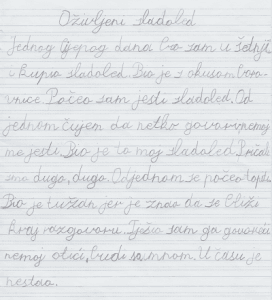 Oživljeni sladoled
Jednog lijepog dana bio sam u šetnji
i kupio sladoled. Bio je s okusom boro-
vnice Počeo sam jesti sladoled. Od
jednom čujem da netko govori nemoj
me jesti. Bio je to moj sladoled Pričali
smo dugo, dugo. Odjednom se počeo topiti.
Bio je tužan jer je znao da se bliži
kraj razgovoru. Tješio sam ga govoreći
nemoj otići, budi sa mnom. U času je
nestao.